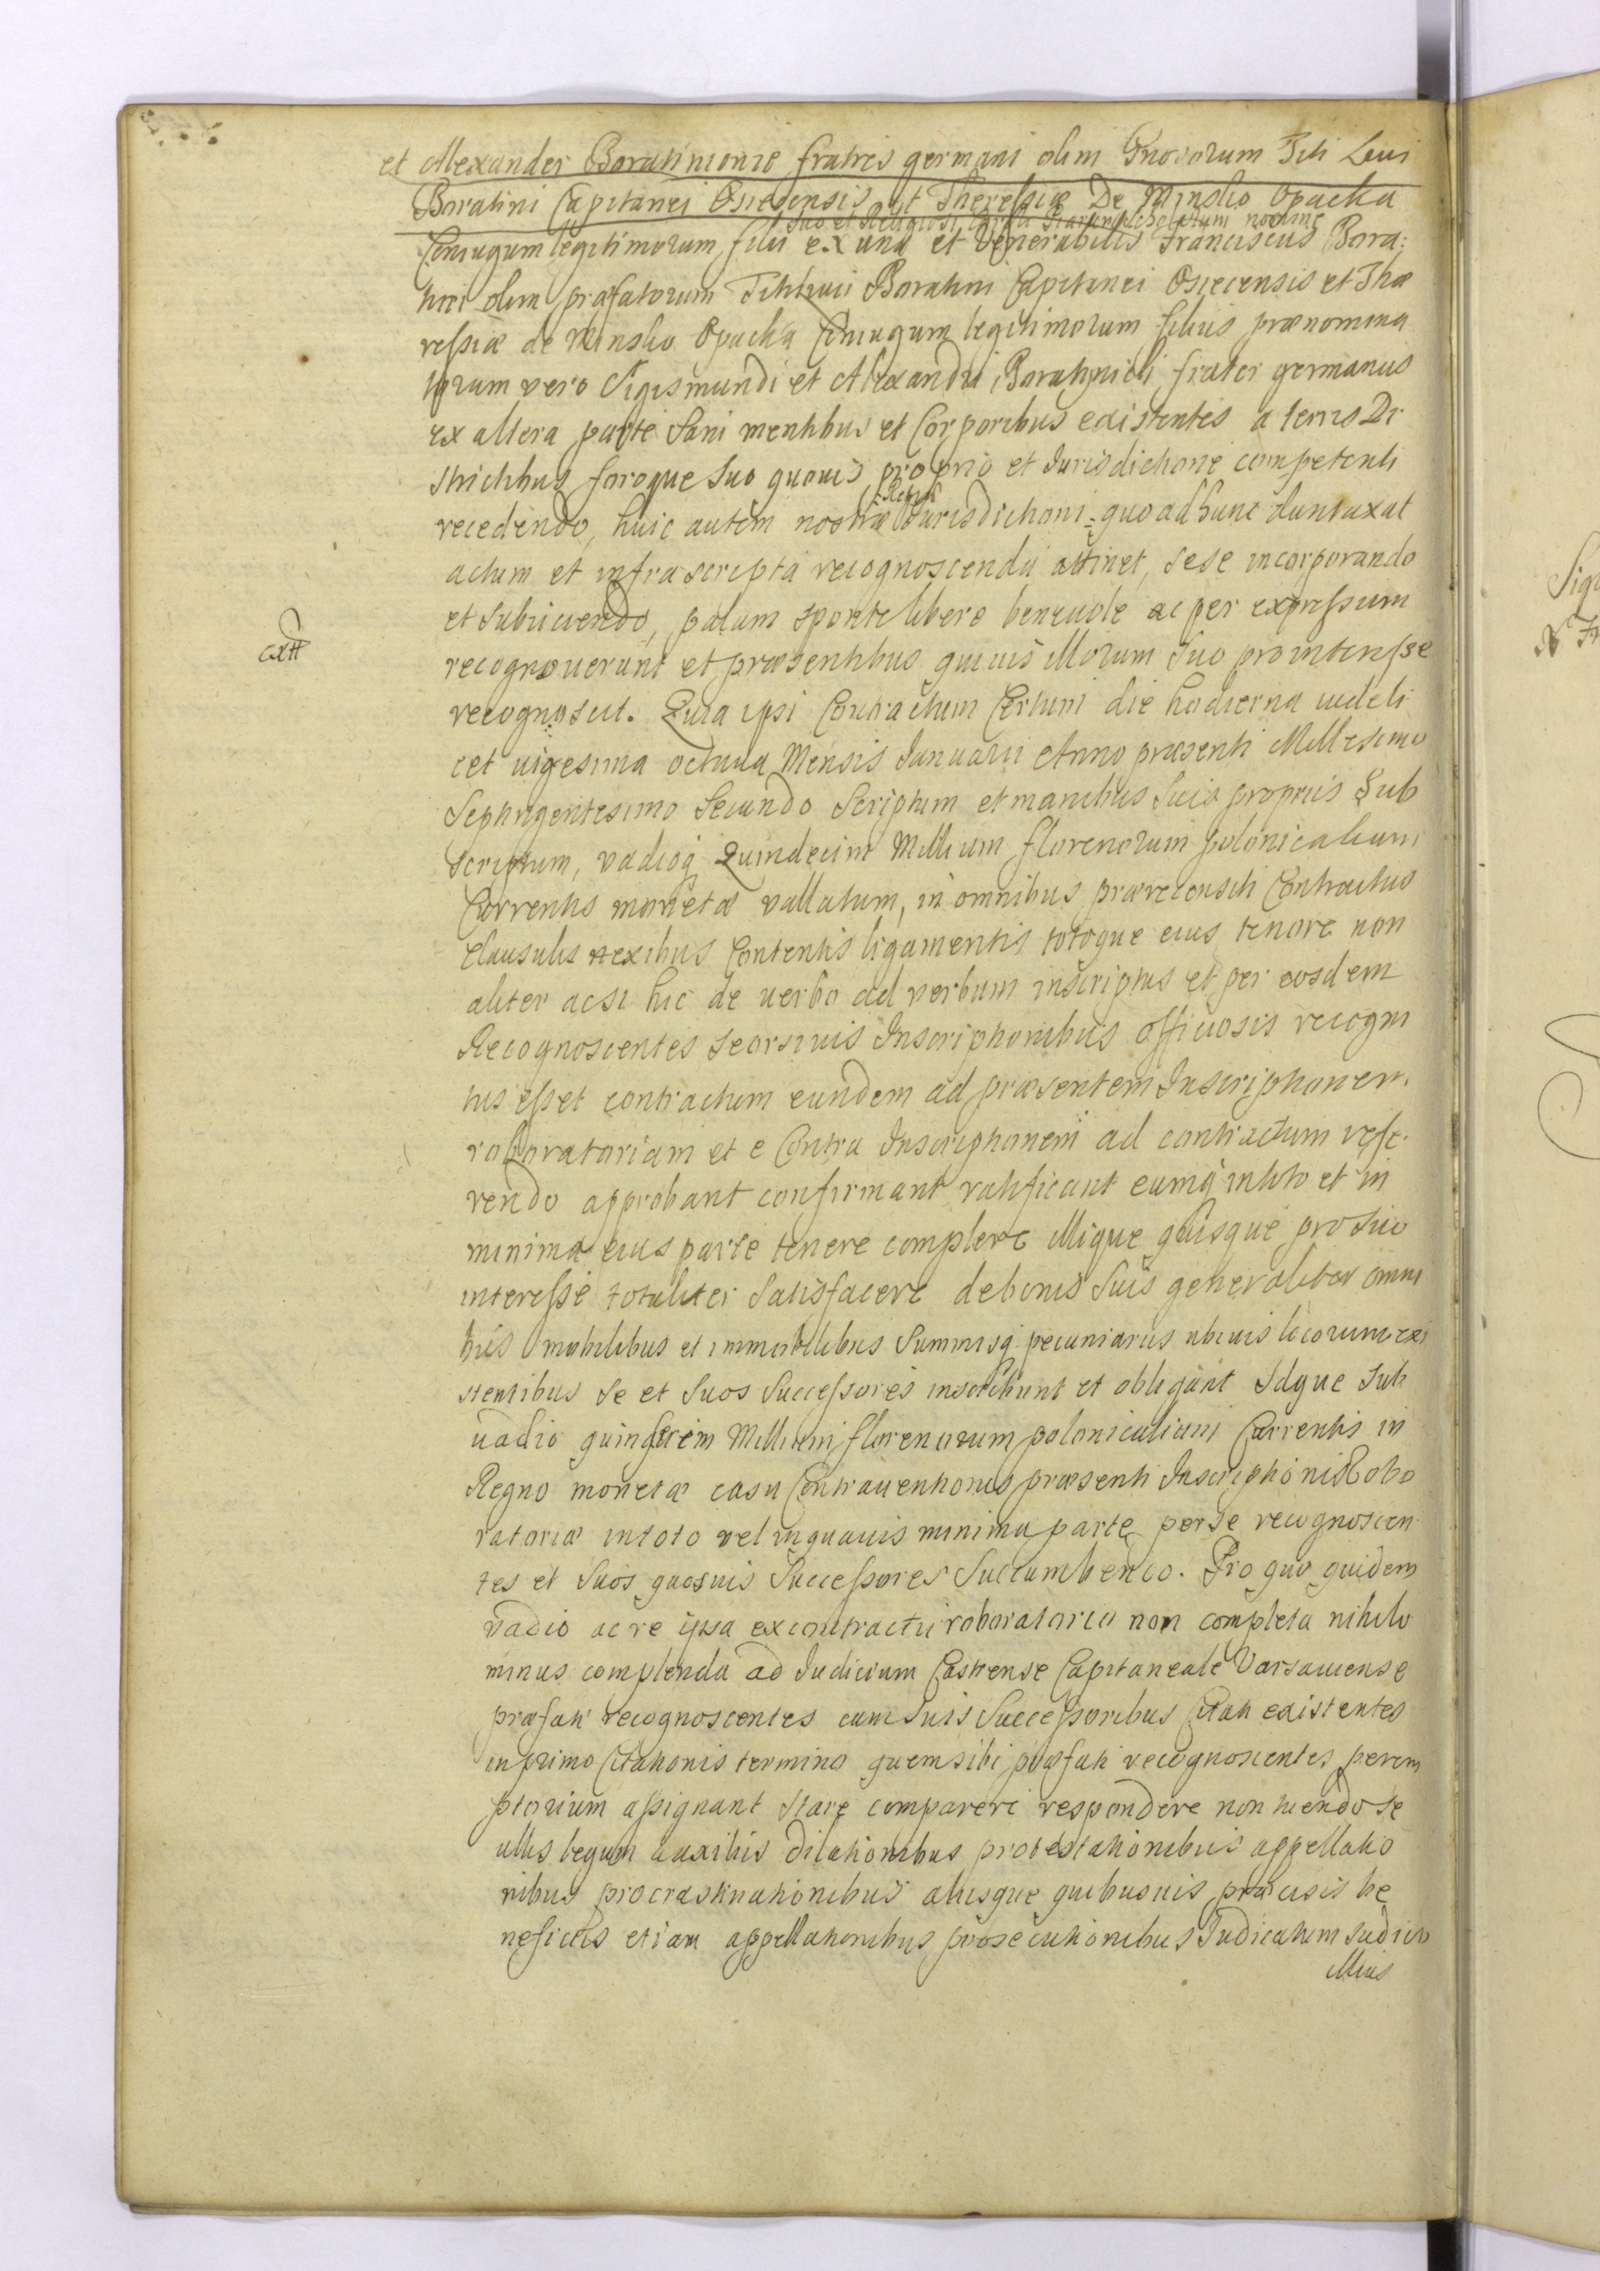 et Alexander Boratinionie fratres germani olim Gnosorum Titi Livii
Boratini Capitanei Osiecensis et Theressiæ De Minsko Opacka
suo et Religiosi Scholarum nomine
Coniugum legitimorum filii ex una et Venerabilis Franciscus Bora:
tini olim præfatorum Titi Livii Boratini Capitanei Osiecensis et The
ressiæ de Minsko Opacka Coniugum legitimorum filius prænomina
torum vero Sigismundi et Alexandri Boratynich frater germanus
ex altera parte Sani mentibus et Corporibus existentes a terris Di
strictibus foroque suo quouis proprio et Iurisdictione competenti
recedendo, huic autem nostræ Iurisdictioni quo ad hunc duntaxat
actum et infrascripta recognoscenda attinet, sese incorporando
et subiiciendo, palam sponte libere beneuole ac per expressum
recognouerunt et præsentibus quiuis illorum suo pro interesse
recognoscit. Quia ipsi Contractum Certum die hodierna videli
cet uigesima octaua Mensis Ianuarii Anno præsenti Millesimo
Septingentesimo Secundo Scriptum et manibus Suis propriis Sub
scriptum, vadioq Quindecim Millium florenorum polonicalium
Currentis monetæ vallatum, in omnibus prærecensiti Contractus
Clausulis nexibus Contentis ligamentis totoque eius tenore non
aliter acsi hic de verbo ad verbum inscriptus et per eosdem
Recognoscentes seorsiuis Inscriptionibus officiosis recogni
tus esset contractum eundem ad præsentem Inscriptionem
roboratoriam et e Contra Inscriptionem ad contractum refe
rendo approbant confirmant ratificant eumq in toto et in
minima eius parte tenere complere illique quisque pro suo
interesse totaliter satisfacere de bonis suis generaliter omni
bus mobilibus et immobilibus Summisq pecuniariis ubiuis locorum exi
stentibus se et suos successores inscribunt et obligant Idque sub
uadio quindecim Millium florenorum polonicalium Currentis in
Regno monetæ casu Contrauentionis præsenti Inscriptionis Robo
ratoriæ in toto vel in quauis minima parte per se recognoscen
tes et suos quosuis Successores Succumbendo. Pro quo quidem
vadio ac re ipsa ex contractu roboratorio non completa nihilo
minus complenda ad Iudicium Castrense Capitaneale Varsauiense
præfati recognoscentes cum suis Successoribus Citati existentes
in primo Citationis termino quem sibi præfati recognoscentes perem
ptorium assignant stare comparere respondere non tuendo se
ullis legum auxiliis dilationibus protestationibus appellatio
nibus procrastinationibus aliisque quibusuis præcisis be
neficiis etiam appellationibus prosecutionibus Iudicatum Iudicio
illius